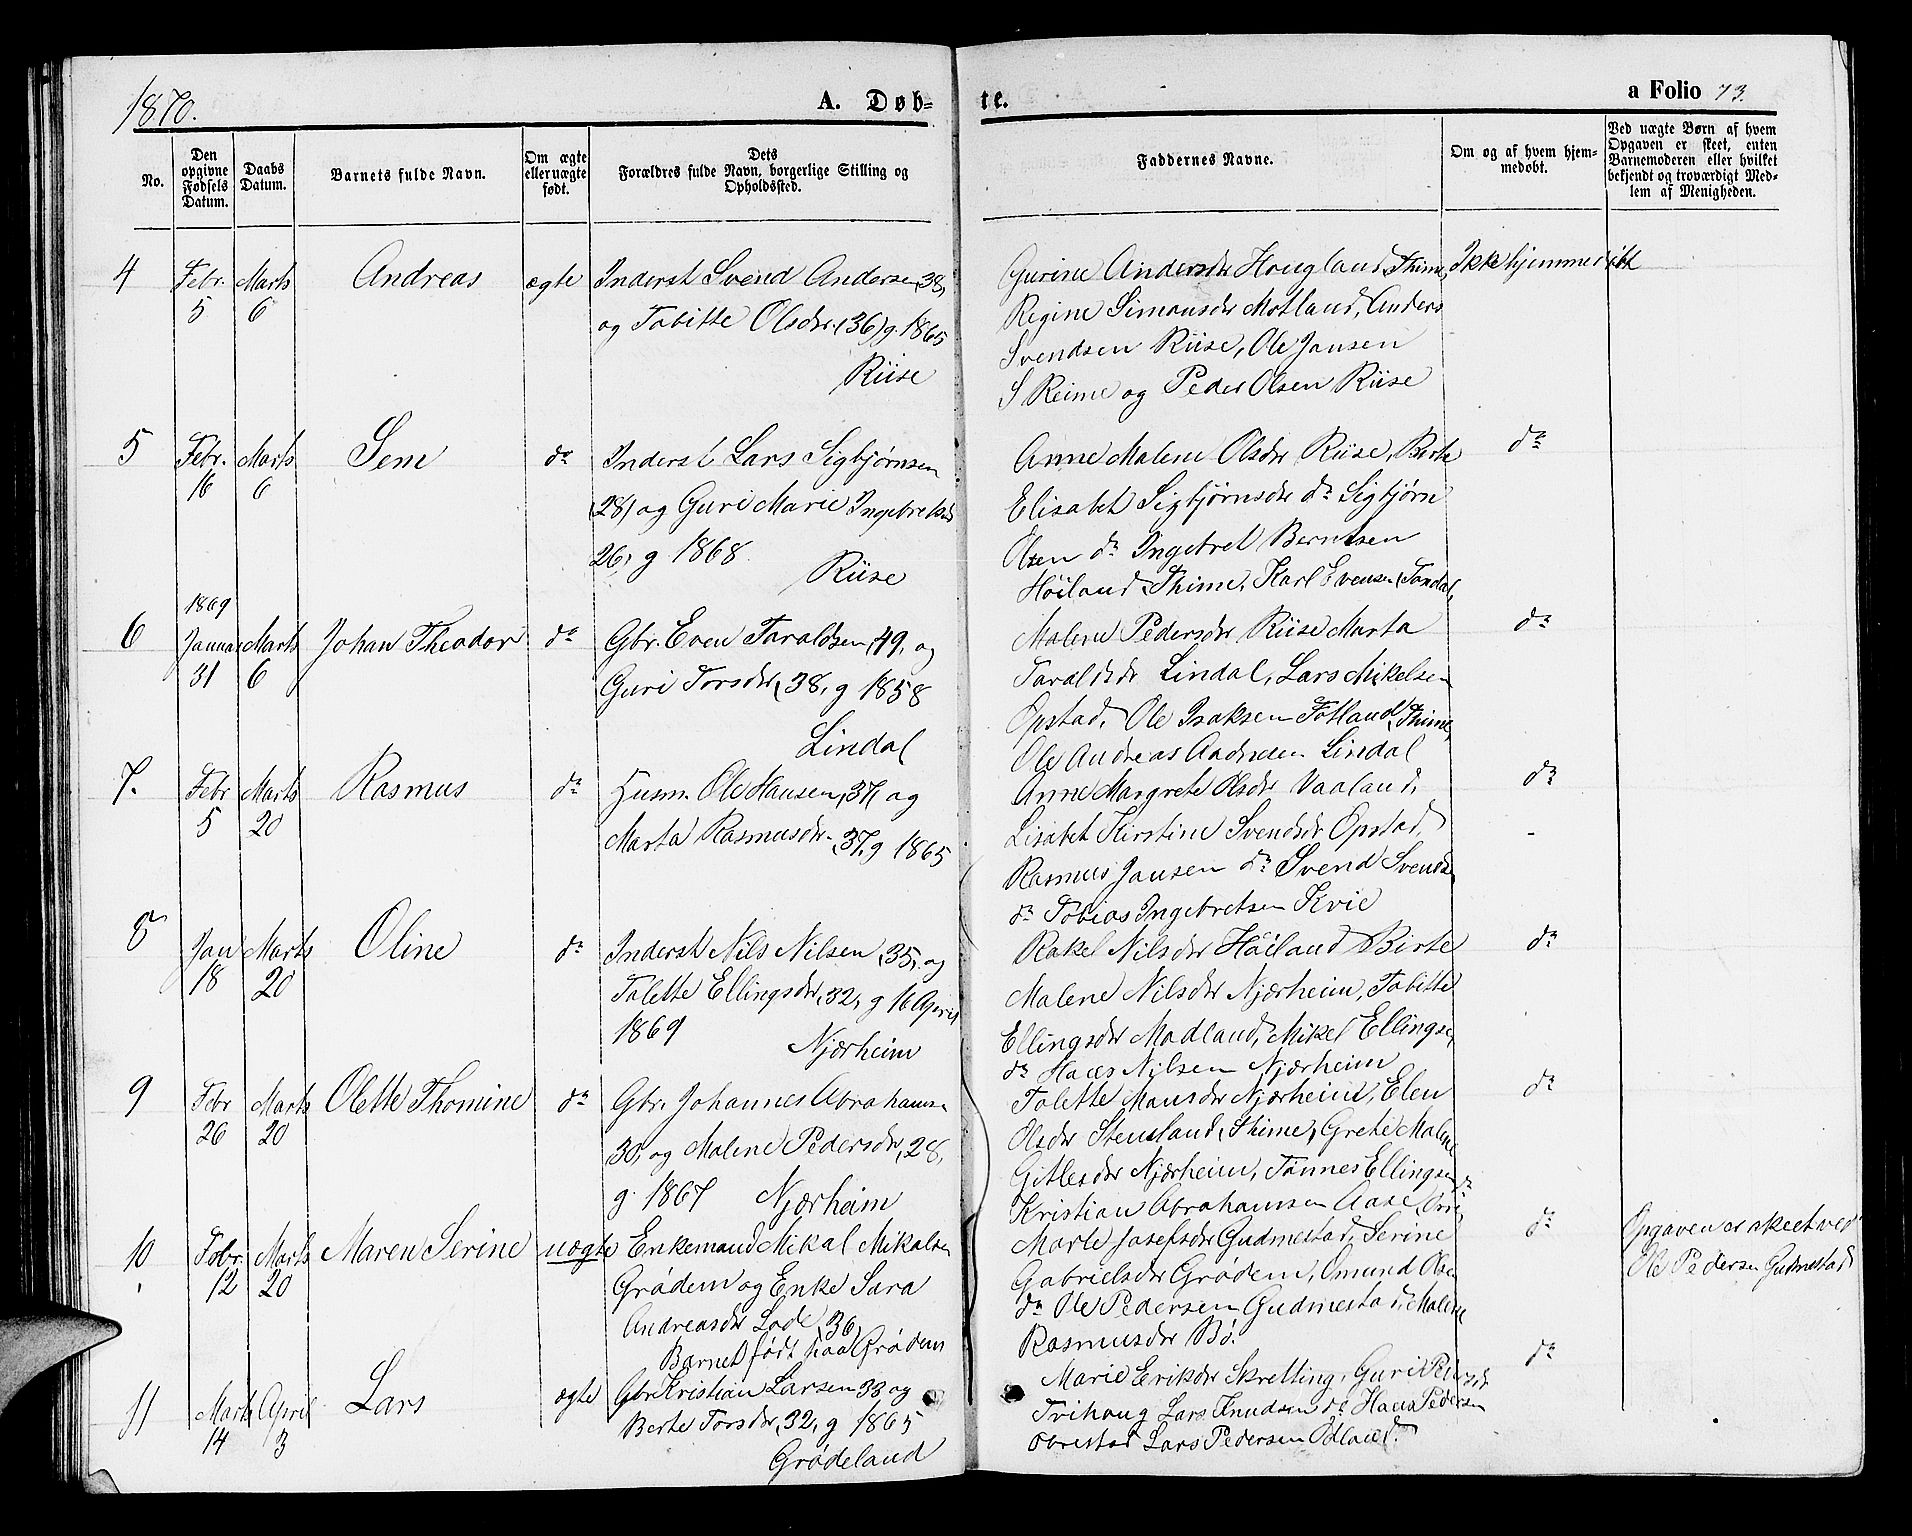 1870.
A. Døb-
te.
a Folio 73.
No.
Den opgivne Fødsels Datum.
Daabs Datum.
Barnets fulde Navn.
Om ægte eller uægte født.
Dets Forældres fulde Navn, borgerlige Stilling og Opholdssted.
Faddernes Navne.
Om og af hvem hjem-
medøbt.
Ved uægte Børn af hvem
Opgaven er skeet, enten
Barnemoderen eller hvilket
bekjendt og troværdigt Med-
lem af Menigheden.
4
Febr. 5
Marts 6
Andreas
ægte
Inderst Svend Andersen, 38,
og Tobitte Olsdr. (36) g. 1865
Riise
Gurine Andersdr Hougland, Thime,
Regine Simonsdr Motland, Anders
Svendsen Riise, Ole Jansen
S Reime og Peder Olsen Riise
Ikke hjemmedøbt
5
Febr. 16
Marts 6
Sem
do
Inderst Lars Sigbjørnsen
(28) og Guri Marie Ingebretsd
26, g 1868.
Riise
Anne Malene Olsdr Riise, Berte
Elisabet Sigbjørnsdr do Sigbjørn
Olsen do Ingebret Berntsen
Höiland, Thime, Karl Evensen,
do
6
1869
Januar 31
Marts 6
Johan Theodor
do
Gbr. Even Taraldsen, 49, og
Guri Torsdr, 38, g 1858
Lindal
Malene Pedersdr Riise Marta
Taraldsdr Lindal, Lars Mikelsen
Opstad, Ole Isaksen Fotland, Thime,
Ole Andreas Andresen Lindal
do
7.
Febr 5
Marts 20
Rasmus
do
Husm. Ole Hansen, 37, og
Marta Rasmusdr. 37, g 1865
Anne Margrete Olsdr Vaaland,
Lisabet Kirstine Svendsdr Opstad,
Rasmus Jansen do Svend Svends.
do Tobias Ingebretsen Kvie
do
8
Jan 18
Marts 20
Oline
do
Inderst Nils Nilsen, 35, og
Tolette Ellingsdr, 32, g 16 April
1869
Njærheim
Rakel Nilsdr Höiland Birte
Malene Nilsdr Njærheim, Tobitte
Ellingsdr Madland, Mikel Ellingse,
do Hans Nilsen Njærheim
do
9
Febr 26
Marts 20
Olette Thomine
do
Gbr. Johannes Abrahams.
30, og Malene Pedersdr, 28,
g. 1867 Njærheim
Tolette Mansdr Njærheim, Elen
Olsdr Stensland, Thime, Grete Malene
Gitlesdr Njærheim, Tønnes Ellingsen do
Kristian Abrahamsen Aase,
do
10
Febr. 12
Marts 20
Maren Serine
uægte
Enkemand Mikal Mikalsen
Grødem og Enke Sara
Andreasdr Lode, 36,
Barnet født paa Grødem
Marte Josefsdr Gudmestad, Serine
Gabrielsdr Grødem, Omund Olsen
do Ole Pedersen Gudmestad, Malene
Rasmusdr Bø.
do
Opgaven er skeet ved
Ole Pedersen Gudmestad
11
Marts 14
April 3
Lars
ægte
Gbr. Kristian Larsen 33 og
Berte Torsdr, 32, g 1865
Grødeland
Marie Eriksdr Skretting, Guri
Tvihoug Lars Knudsen do Hans Pedersen
Obrestad Lars Pedersen Ödland.
do